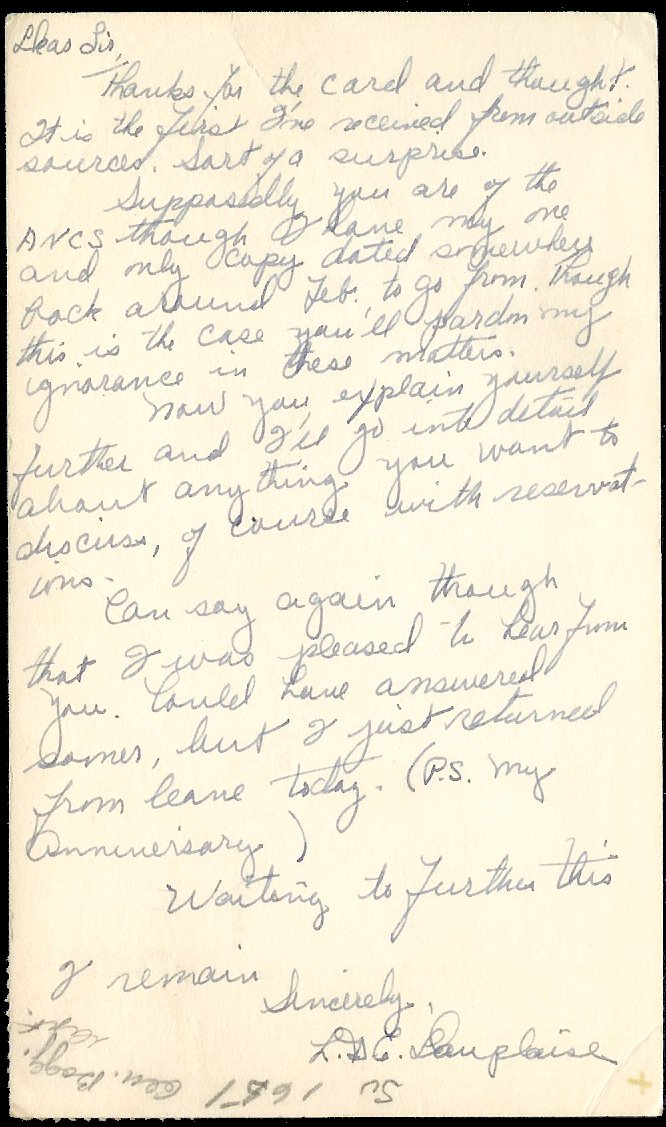 Dear Sir,
Thanks for the card and thought.
It is the first I've received from outside
sources. Sort of a surprise.
Supposedly you are of the
ANCS though I have my one
and only copy dated somewhere
back around Feb. to go from. Though
this is the case you'll pardon my
ignorance in these matters.
Now you explain yourself
further and I'll go into detail
about anything you want to
discuss, of course with reservat-
ions.
Can say again though
that I was pleased to hear from
you. Could have answered
sooner, but I just returned
from leave today. (P.S. My
Anniversary)
Waiting to further this
I remain
Sincerely,
L. E. Lauplaise
1651